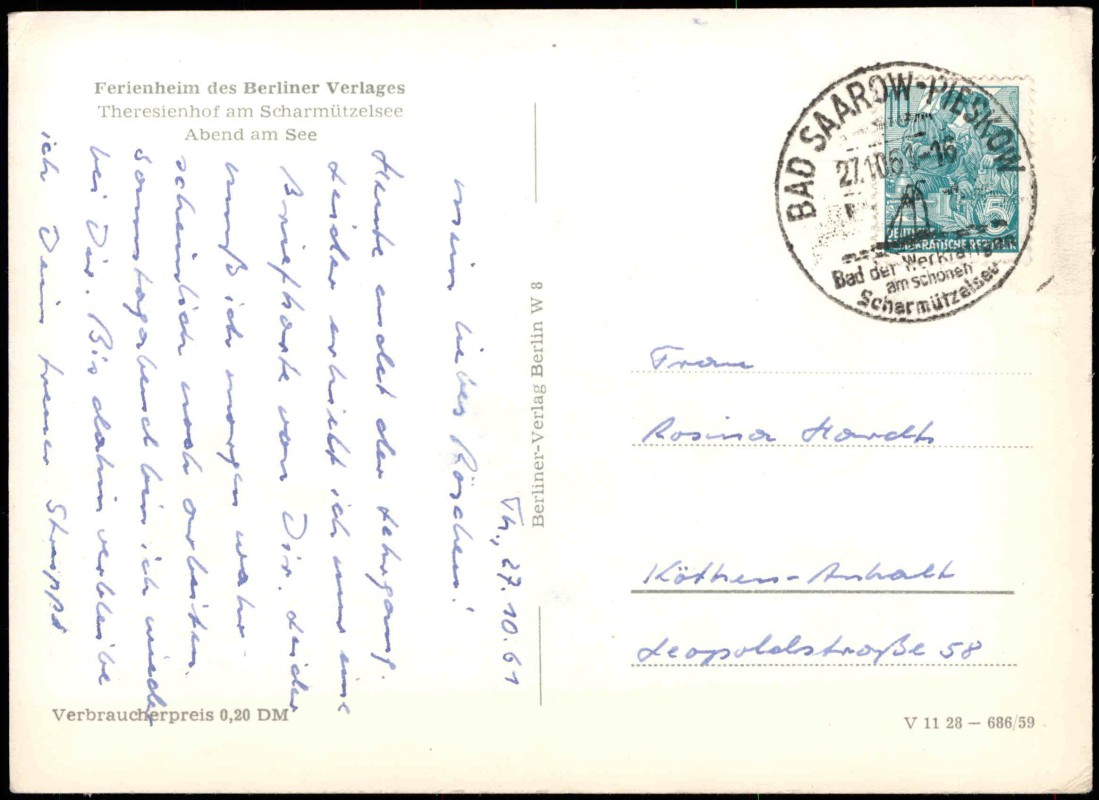 Ferienheim des Berliner Verlages
Theresienhof am Scharmützelsee
Abend am See
Th., 27.10.61
Mein liebes Röschen!
Heute endet der Lehrgang.
Leider erhielt ich nur eine
Briefkarte von Dir. Leider
muß ich morgen wahr-
scheinlich noch arbeiten.
Sonnabend bin ich wieder
bei Dir. Bis dahin verbleibe
ich Dein treuer
Verbraucherpreis 0,20 DM
Berliner-Verlag Berlin W 8
BAD SAAROW-PIESKOW
27.10.61-16
Bad der Werktätigen
am schönen
Scharmützelsee
10
5
DEUTSCHE
DEMOKRATISCHE REPUBLIK
Frau
Rosina Hardt
Köthen-Anhalt
Leopoldstraße 58
V 11 28 – 686/59